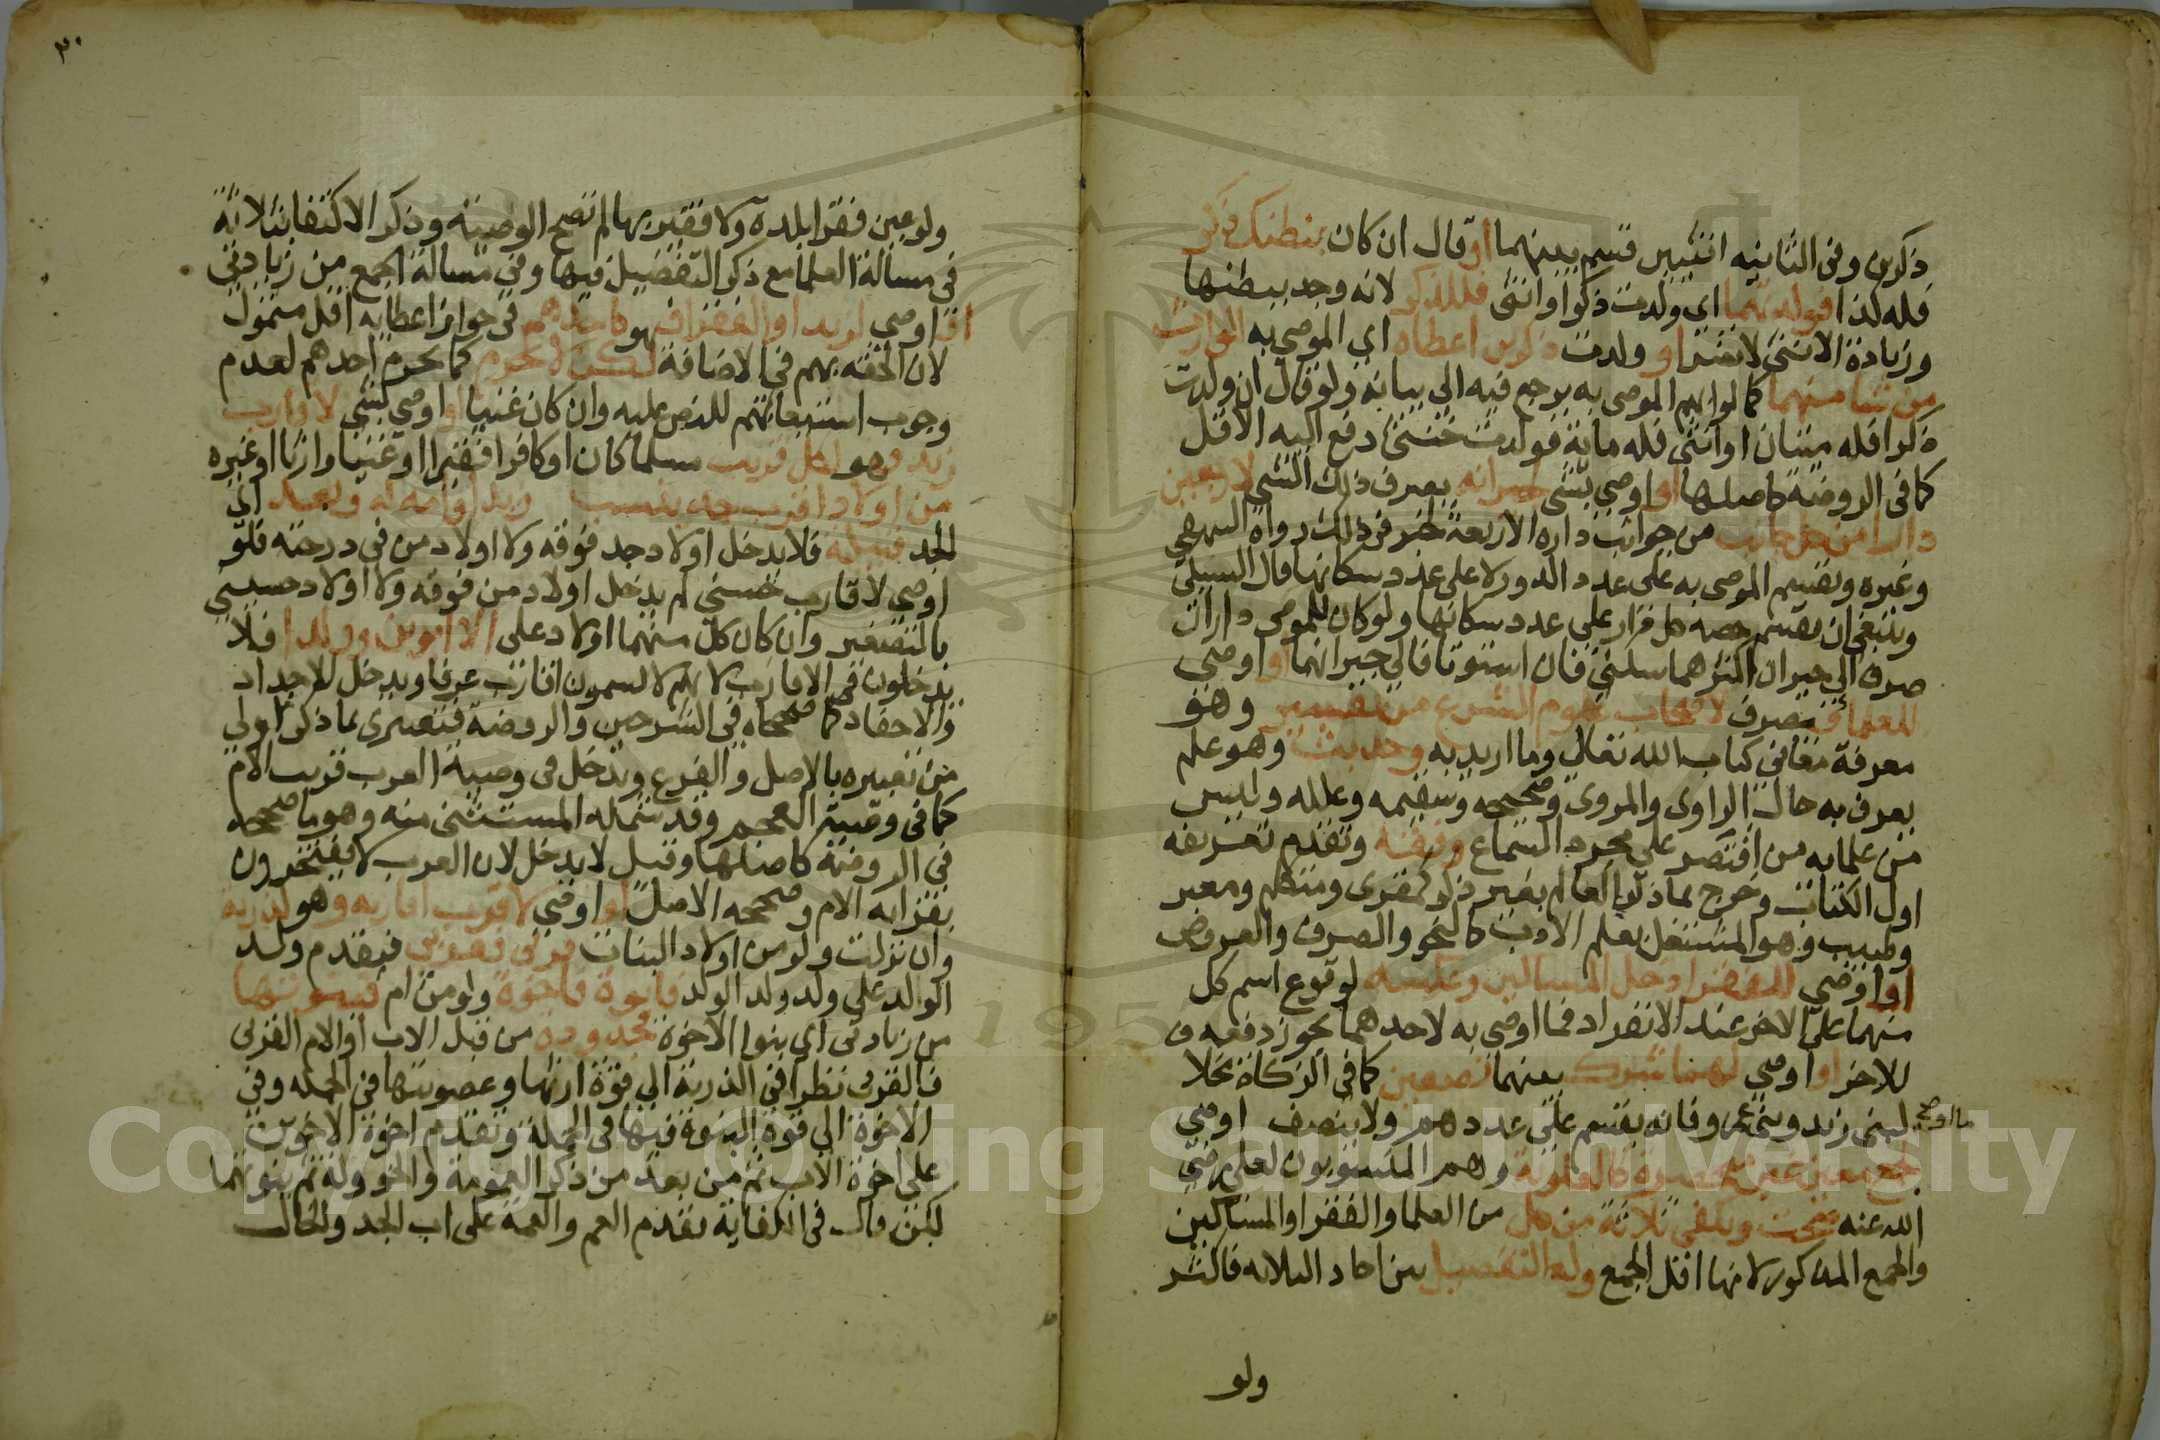 ذكرين وفي الثانيه انثيين قسم بينهما او قال ان كان ببطنك ذكر
فله كذا فولدتهما اي ولدت ذكرا وانثى فللذكر لانه وجد ببطنها
وزيادة الانثى لا تضر او ولدت ذكرين اعطاه اي الموصى به الوارث
من شا منهما كما لو ابهم الموصى به يرجع فيه الى بيانه ولو قال ان ولدت
ذكرا فله مئتان او انثى فله مائة فولدت خنثى دفع اليه الاقل
كما في الروضة كاصلها او اوصي بشي لجيرانه يصرف ذلك الشي لاربعين
دارا من كل جانب من جوانب داره الاربعة لخبر في ذلك رواه البيهقي
وغيره ويقسم الموصى به على عدد الدور لا على عدد سكانها قال السبكي
وينبغي ان يقسم حصة كل دار على عدد سكانها ولو كان للموصي داران
صرف الى جيران اكثرهما سكنى فان استوتا فالى جيرانهما او اوصي
للعلما فيصرف لاصحاب علوم الشرع من تفسير وهو
معرفة معاني كتاب الله تعالى وما اريد به وحديث وهو علم
يعرف به حال الراوي والمروي وصحيحه وسقيمه وعلله وليس
من علمائه من اقتصر على مجرد السماع وفقه وتقدم تعريفه
اول الكتاب وخرج بما ذكر العالم بغير ذكر كمقرى ومتكلم ومعبر
وطبيب وهو المشتغل بعلم الادب كالنحو والصرف والعروض
او اوصي للفقرا دخل المساكين وعكسه لوقوع اسم كل
منهما على الاخر عند الانفراد فما اوصي به لاحدهما يجوز دفعه
للاخر او اوصي لهما شرك بينهما نصفين كما في الزكاة بخلا
ما اوصى لبني زيد وبني عمرو فانه يقسم على عددهم ولا ينصف اوصي
لجمع معين غير منحصر كالعلوية وهم المنسوبون لعلي رضي
الله عنه صحت ويكفي ثلاثة من كل من العلما والفقرا والمساكين
والجمع المذكور لانها اقل الجمع وله التفضيل بين احاد الثلاثه فاكثر
ولو
٣٠
ولو عين فقرا بلده ولا فقير بها لم تصح الوصية وذكر الاكتفا بثلاثة
في مسالة العلما مع ذكر التفضيل فيها وفي مسالة الجمع من زيادتي
او اوصي لزيد والفقرا فهو كاحدهم في جواز اعطائه اقل متمول
لانه الحقه بهم في الاضافة لكن لا يحرم كما يحرم احدهم لعدم
وجوب استيعابهم للنص عليه وان كان غنيا او اوصي بشي لاقارب
زيد فهو لكل قريب مسلما كان او كافرا فقيرا او غنيا وارثا او غيره
من اولاد اقرب جد ينسب زيد او امه له ويعد اي
الجد قبيلة فلا يدخل اولاد جد فوقه ولا اولاد من في درجته فلو
اوصي لاقارب حسني لم يدخل اولاد من فوقه ولا اولاد حسيني
بالتصغير وان كان كل منهما اولاد على الا ابوين وولدا فلا
يدخلون في الاقارب لانهم لا يسمون اقارب عرفا ويدخل الاجداد
والاحفاد كما صححاه في الشرحين والروضة فتعبيري بما ذكر اولى
من تعبيره بالاصل والفرع ويدخل في وصية العرب قريب الام
كما في وصية العجم وقد شمله المستثنى منه وهو ما صححه
في الروضة كاصلها وقيل لا يدخل لان العرب لا يفتخرون
بقرابة الام وصححه الاصل او اوصي لاقرب اقاربه فهو لذرية
وان نزلت ولو من اولاد البنات قربى فقربى فيقدم ولد
الولد على ولد ولد الولد فابوة فاخوة ولو من ام فبنوتها
من زيادتي اي بنوا الاخوة فجدودة من قبل الاب او الام القربى
فالقربى نظرا في الذرية الى قوة ارثها وعصوبتها في الجمله وفي
الاخوة الى قوة البنوة فيها في الجملة وتقدم اخوة الابوين
على اخوة الاب ثم من بعد من ذكر العمومة والخوولة ثم بنوتهما
لكن قال في الكفاية يقدم العم والعمة على اب الجد والخال